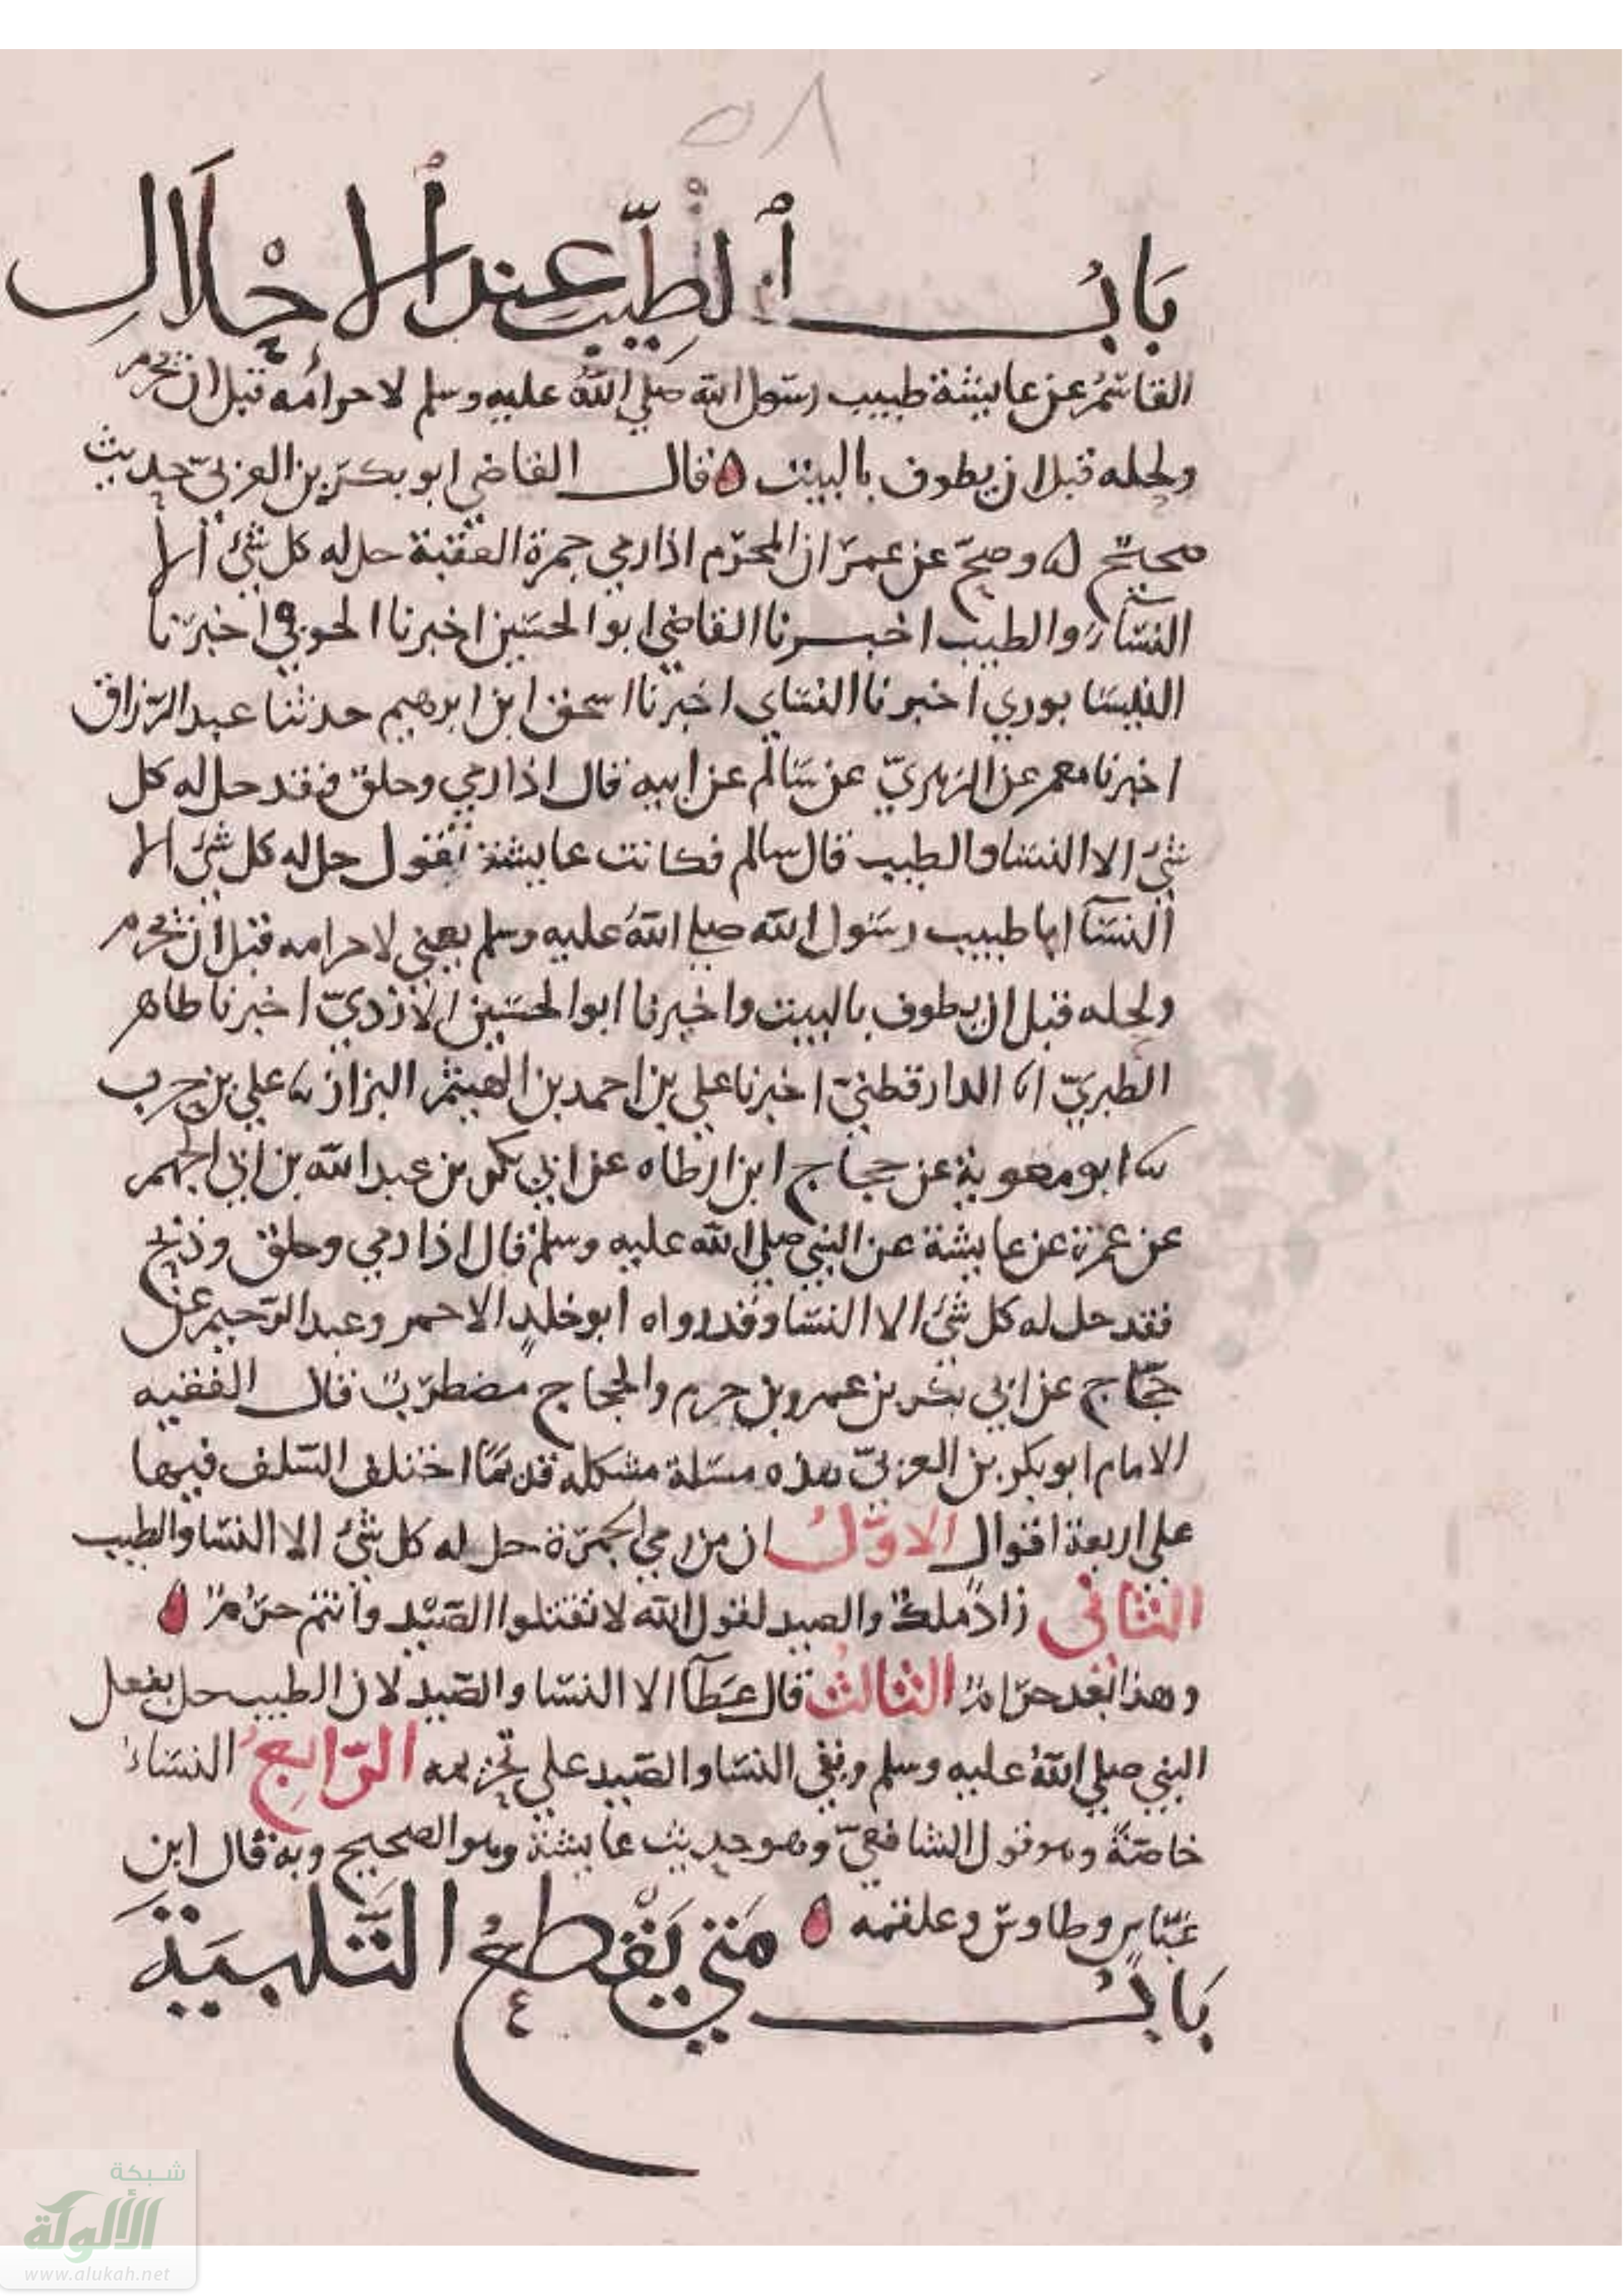 ٥٨
بَابُ ٱلطِّيْبِ عند ٱلاحْلَالِ
القاسمُ عن عايشة طيبت رسول الله صلي اللهُ عليه وسلم لاحرامُه قبل ان يحرم
ولحله قبل ان يطوف بالبيت ٥ قال القاضي ابو بكر بن العربيّ حديث
صحيح ٥ وصحّ عن عمر ان المحرم اذا رمي جمرة العقبة حل له كل شئ الا
النسآء والطيب اخبرنا القاضي ابو الحسين اخبرنا الحوفي اخبرنا
النيسابوري اخبرنا النساي اخبرنا اسحق ابن ابرهيم حدثنا عبد الرزاق
اخبرنا معمر عن الزهريّ عن سالم عن ابيه قال اذا رمي وحلق فقد حل له كل
شئ الا النسا والطيب قال سالم فكانت عايشة تقول حل له كل شئ الا
النسآ انا طيبت رسول الله صلي اللهُ عليه وسلم يعني لاحرامه قبل ان يحرم
ولحله قبل ان يطوف بالبيت واخبرنا ابو الحسين الازديّ اخبرنا طاهر
الطبريّ انا الدارقطنيّ اخبرنا علي بن احمد بن الهيثم البزاز نا علي بن حرب
نا ابو معوية عن حجاج ابن ارطاه عن ابي بكر بن عبد الله بن ابي الجهم
عن عمرة عن عايشة عن النبي صلي الله عليه وسلم قال اذا رمي وحلق وذبح
فقد حل له كل شئ الا النسا وقد رواه ابو خلدٍ الاحمر وعبد الرحيم عن
حجّاج عن ابي بكر بن عمرو بن حزم والحجاج مضطربٌ قال الفقيه
الامام ابو بكر بن العربيّ هذه مسئلة مشكله قديمًا اختلف السلف فيها
علي اربعة اقوال الاوّلُ ان من رمي الجمرة حل له كل شئ الا النسا والطيب
الثاني زاد ملكٌ والصيد لقول الله لا تقتلوا الصَّيْد وانتم حرُمٌ ٥
وهذا بعد حرامٌ الثالثُ قال عَطَآ الا النسا والصّيد لان الطيب حل بفعل
النبي صلي اللهُ عليه وسلم وبقي النسا والصّيد علي تحريمه الرّابعُ النساءُ
خاصّةً وهو قول الشافعيّ وهو حديث عايشة وهو الصحيح وبه قال ابن
عبّاسٍ وطاوسٌ وعلقمه ٥
بَابُ مَتي يَقْطعُ التَّلبيَةَ
شبكة
الألوكة
www.alukah.net